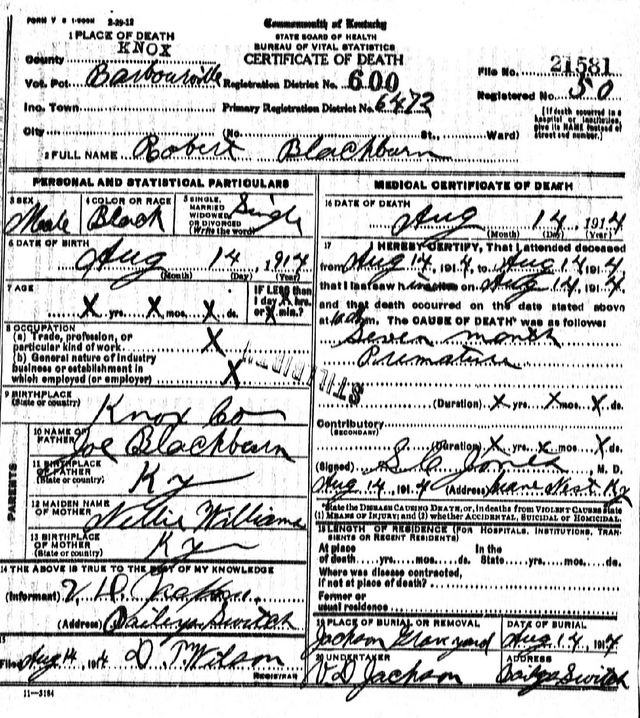 FORM V S 1-500M 2-29-12
Commonwealth of Kentucky
STATE BOARD OF HEALTH
BUREAU OF VITAL STATISTICS
CERTIFICATE OF DEATH
1 PLACE OF DEATH
County KNOX
Vot. Pct. Barbourville Registration District No. 600
File No. 21581
Inc. Town Primary Registration District No. 6472
Registered No. 50
City (No. St., Ward)
(If death occurred in a hospital or institution, give its NAME instead of street and number.)
2 FULL NAME Robert Blackburn
PERSONAL AND STATISTICAL PARTICULARS
3 SEX Male
4 COLOR OR RACE Black
5 SINGLE, MARRIED WIDOWED OR DIVORCED (Write the word) Single
6 DATE OF BIRTH Aug 14, 1914
(Month) (Day) (Year)
7 AGE X yrs. X mos. X ds.
IF LESS than 1 day X hrs. or X min.?
8 OCCUPATION
(a) Trade, profession, or particular kind of work X
(b) General nature of industry business or establishment in which employed (or employer) X
9 BIRTHPLACE (State or country) Knox Co
PARENTS
10 NAME OF FATHER Joe Blackburn
11 BIRTHPLACE OF FATHER (State or country) Ky
12 MAIDEN NAME OF MOTHER Nellie Williams
13 BIRTHPLACE OF MOTHER (State or country) Ky
14 THE ABOVE IS TRUE TO THE BEST OF MY KNOWLEDGE
(Informant)
(Address) Baileys Switch
15
Filed Aug 14, 1914 D. T. Wilson
REGISTRAR
11-3184
MEDICAL CERTIFICATE OF DEATH
16 DATE OF DEATH
Aug 14, 1914
(Month) (Day) (Year)
17 I HEREBY CERTIFY, That I attended deceased
from Aug 14, 1914, to Aug 14, 1914
that I last saw h alive on Aug 14, 1914
and that death occurred on the date stated above
at m. The CAUSE OF DEATH* was as follows:
Seven month
Premature
STILLBIRTH
(Duration) X yrs. X mos. X ds.
Contributory
(SECONDARY)
(Duration) X yrs. X mos. X ds.
(Signed) S. C. Jones, M. D.
Aug 14, 1914 (Address) Ky
*State the DISEASE CAUSING DEATH, or, in deaths from VIOLENT CAUSES state (1) MEANS OF INJURY; and (2) whether ACCIDENTAL, SUICIDAL or HOMICIDAL.
18 LENGTH OF RESIDENCE (FOR HOSPITALS, INSTITUTIONS, TRANSIENTS OR RECENT RESIDENTS)
At place of death yrs. mos. ds. In the State yrs. mos. ds.
Where was disease contracted,
if not at place of death?
Former or
usual residence
19 PLACE OF BURIAL OR REMOVAL
Jackson Graveyard
DATE OF BURIAL
Aug 14 1914
20 UNDERTAKER
V D Jackson
ADDRESS
Baileys Switch